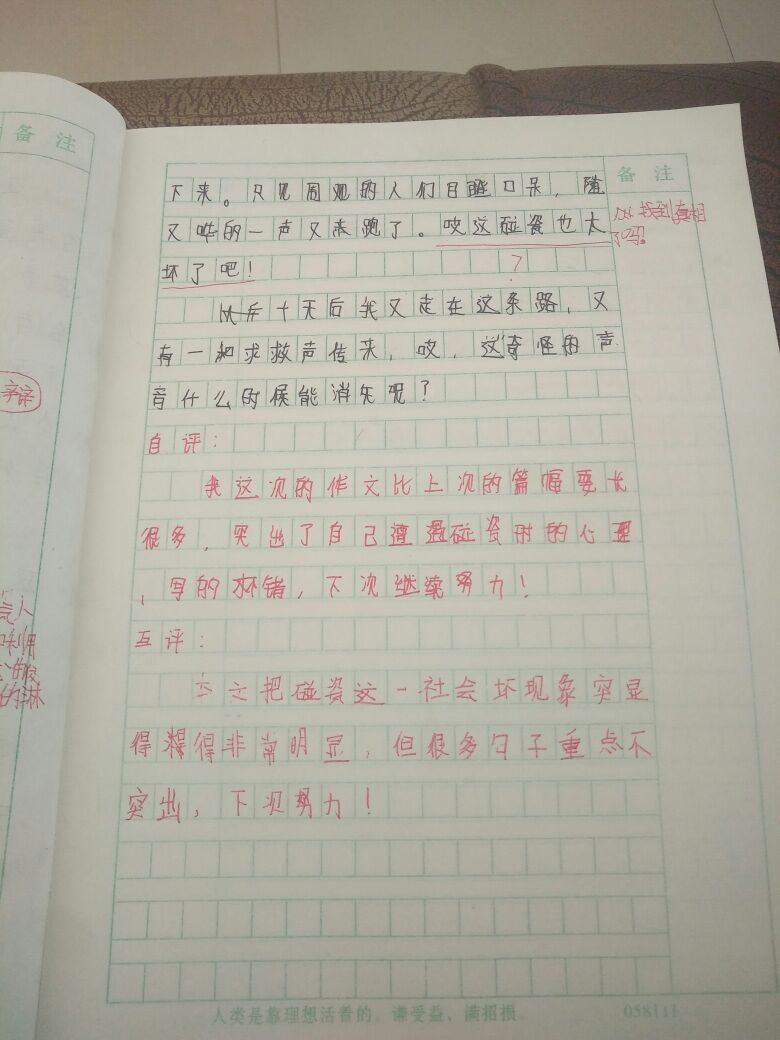 备注
备注
下来。只见周观的人们目睡口呆，随
又哗的一声又表跑了。哎这碰瓷也太
找到真相
了吗!
坏了吧！
?
从后十天后我又走在这条路，又
有一和求救声传来，哎，这奇怪的声
音什么时候能消失呢？
自评：
我这次的作文比上次的篇幅要长
很多，突出了自己遭遇碰瓷时的心理
，写的不错，下次继续努力！
互评：
文把碰瓷这一社会坏现象突显
得得非常明显，但很多句子重点不
突出，下次努力！
人
利用
的
的淋
人类是靠理想活着的。谦受益，满招损。
058111